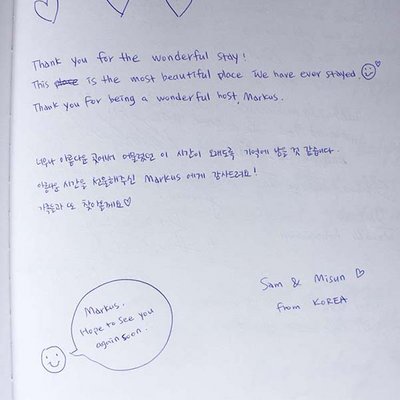 Thank you for the wonderful stay!
This place is the most beautiful place we have ever stayed
Thank you for being a wonderful host, Markus.
너무나 아름다운 곳에서 머물렀던 이 시간이 오래도록 기억에 남을 것 같습니다.
아름다운 시간을 선물해주신 Markus 에게 감사드려요!
가족들과 또 찾아올게요♡
Sam & Misun ♡
from KOREA
Markus.
Hope to see you
again soon.